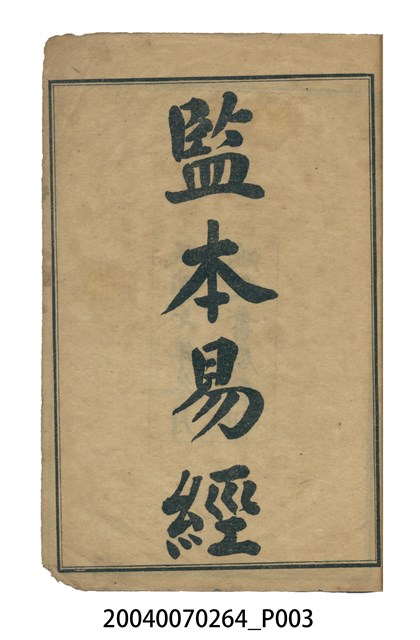 監本易經
20040070264_P003